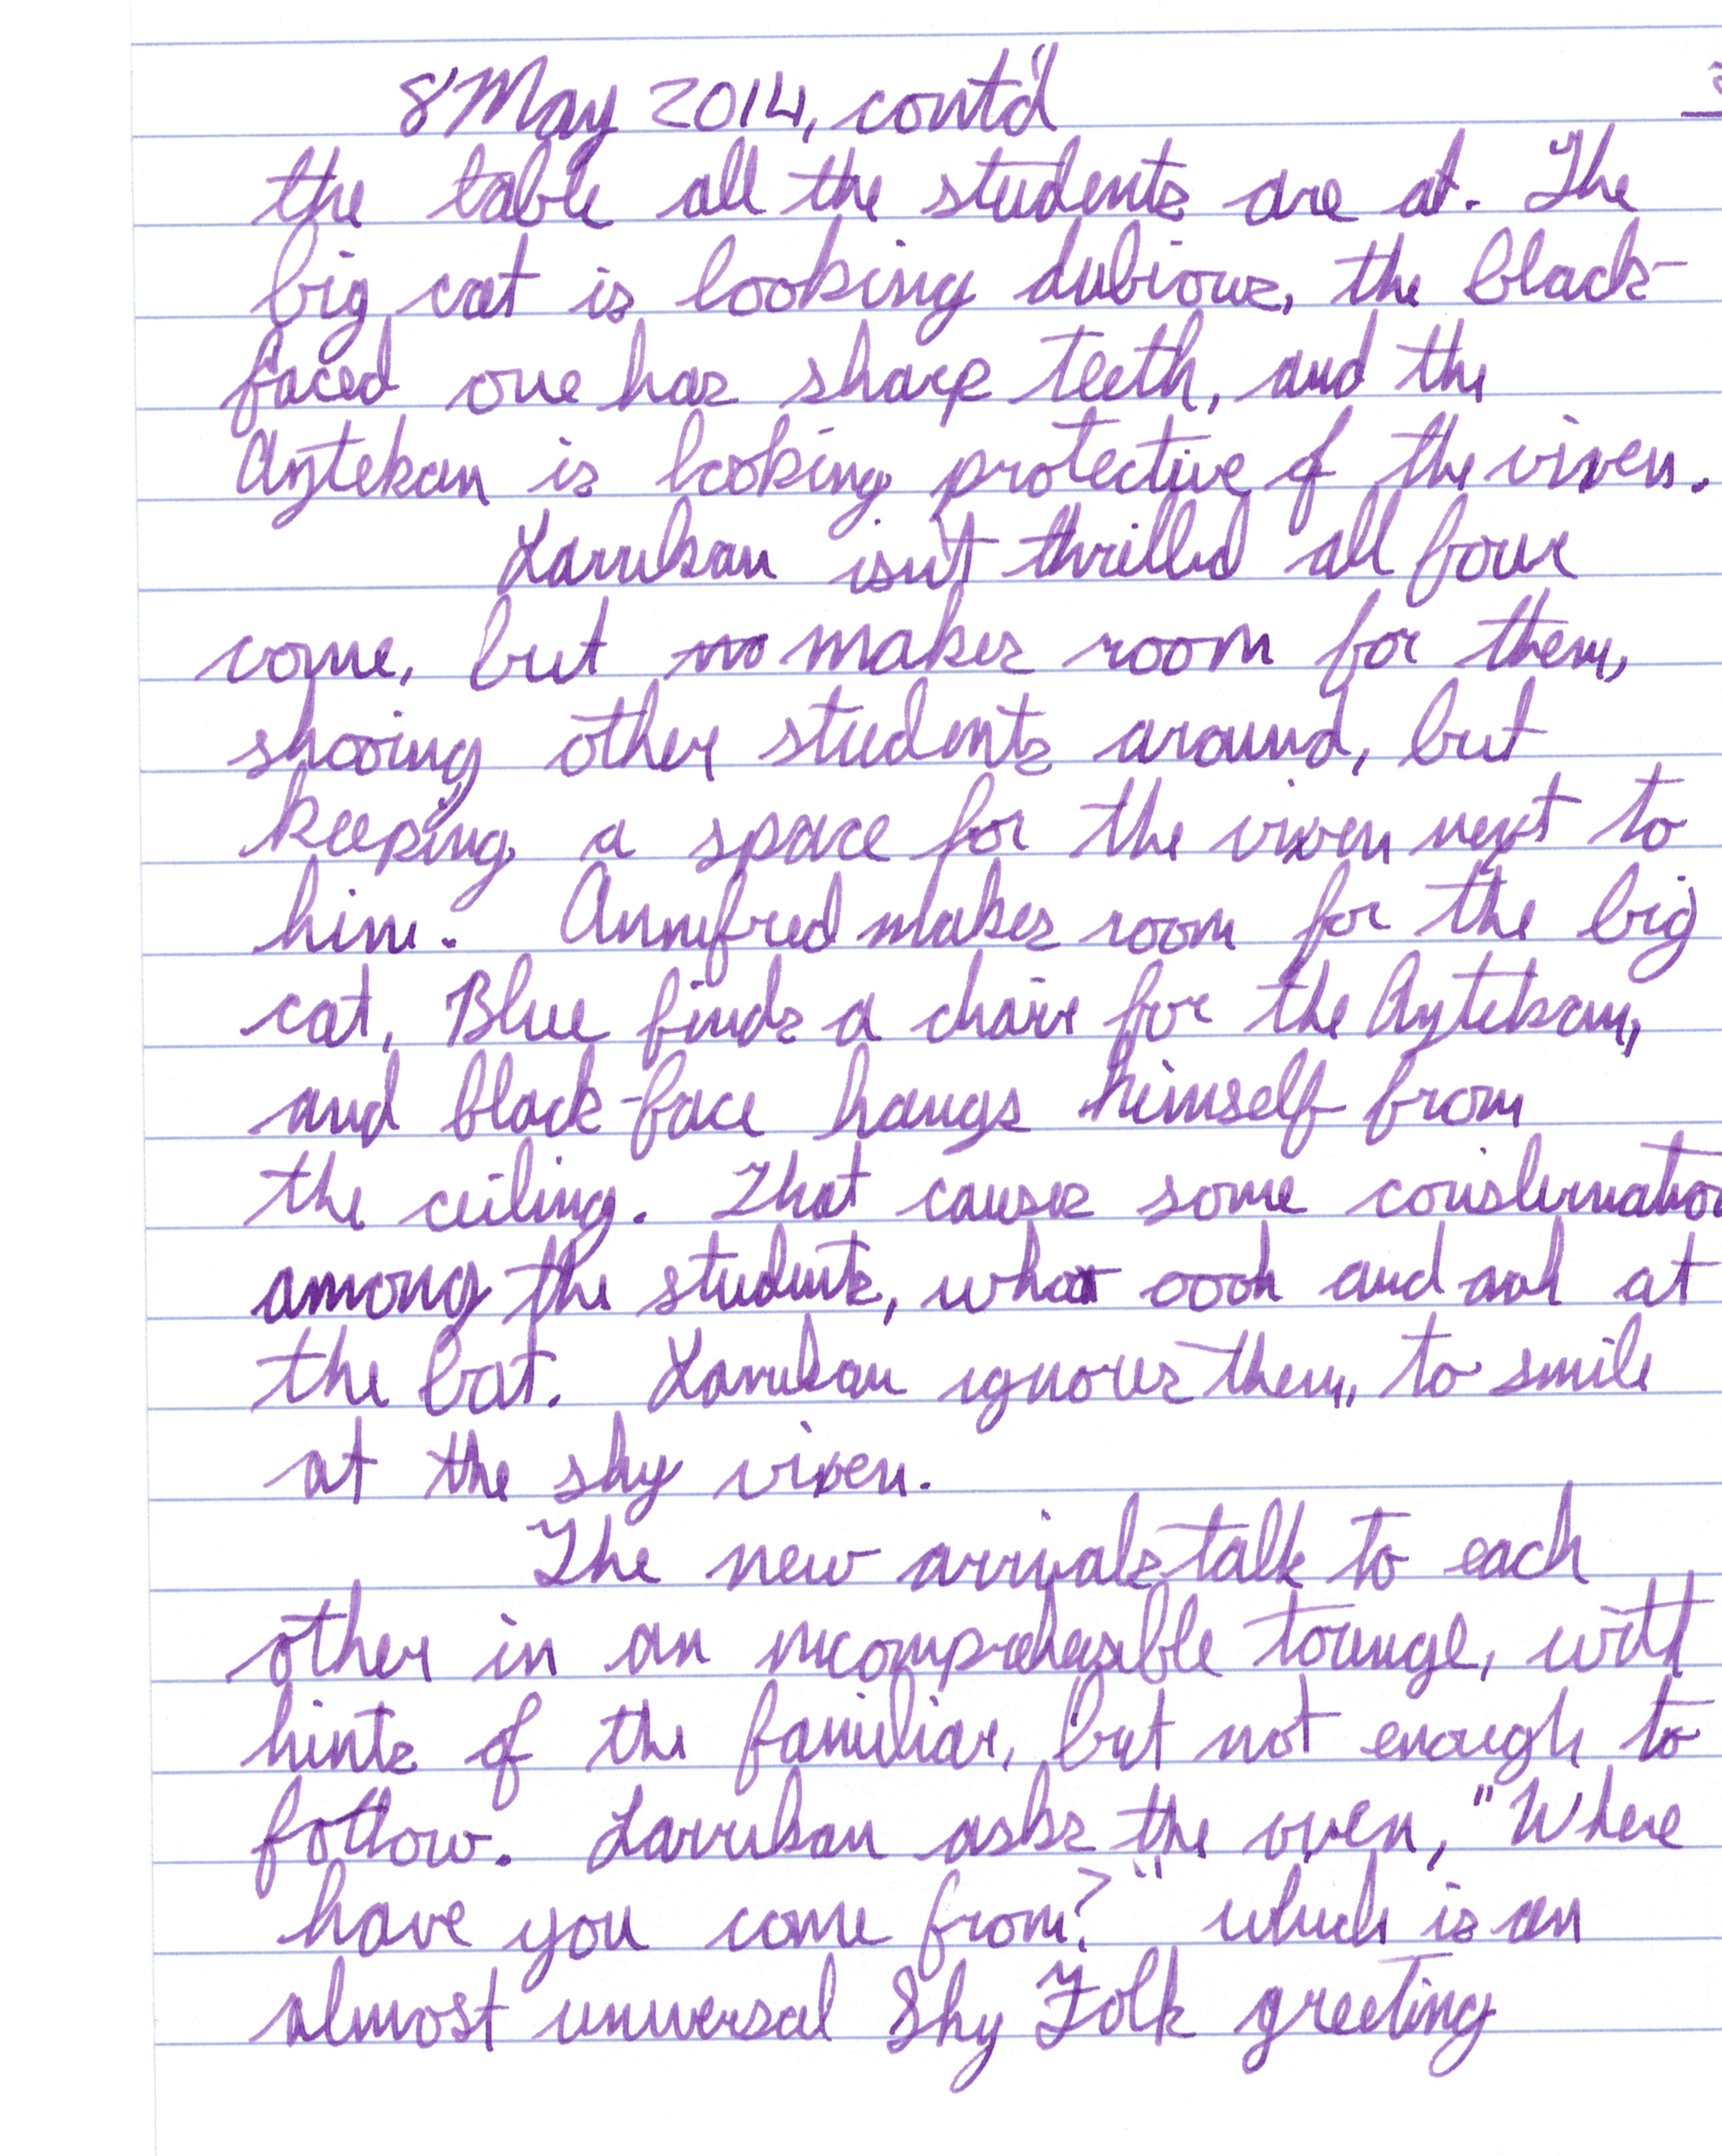 8 May 2014, cont'd
the table all the students are at. The
big cat is looking dubious, the black-
faced one has sharp teeth, and the
Aztekan is looking protective of the vixen.
Larrekan isn't thrilled all four
come, but no makes room for them,
shooing other students around, but
keeping a space for the vixen next to
him. Annefred makes room for the big
cat, Blue finds a chair for the Aztekan,
and black-face hangs himself from
the ceiling. That causes some consternation
among the students, who ooh and aah at
the bat. Larrekan ignores them, to smile
at the shy vixen.
The new arrivals talk to each
other in an incomprehensible tounge, with
hints of the familiar, but not enough to
follow. Larrekan asks the vixen, "Where
have you come from?" which is an
almost universal Shy Folk greeting